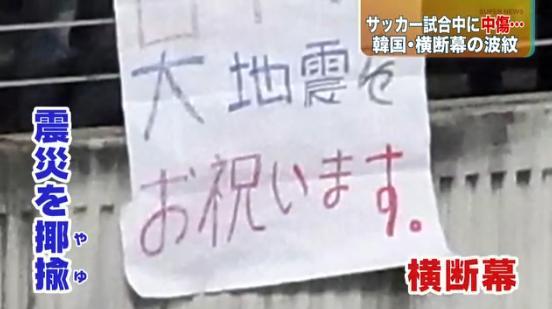 SUPER NEWS
サッカー試合中に中傷…
韓国・横断幕の波紋
大地震を
お祝います。
震災を揶揄
やゆ
横断幕